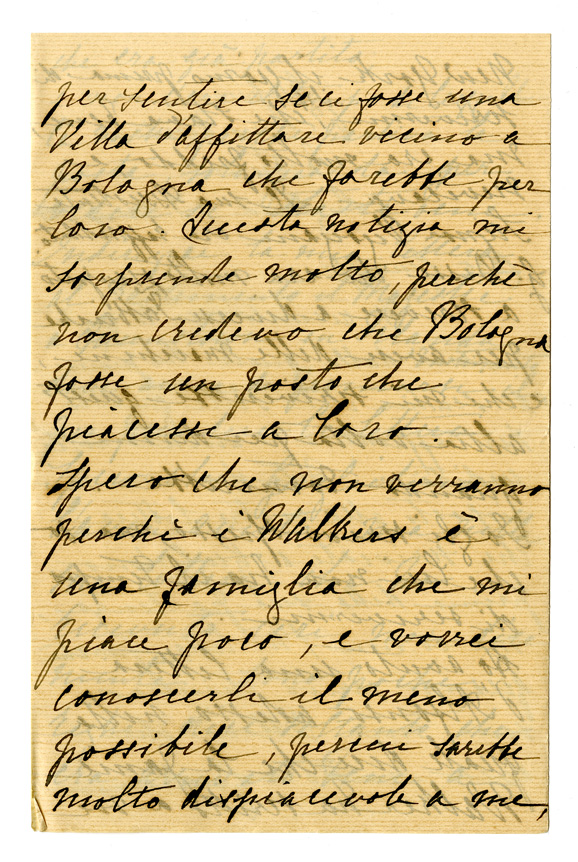 per sentire se ci fosse una
Villa d'affittare vicino a
Bologna che farebbe per
loro. Questa notizia mi
sorprende molto, perchè
non credevo che Bologna
fosse un posto che
piacesse a loro.
Spero che non verranno
perchè i Walkers è
una famiglia che mi
piace poco, e vorrei
conoscerli il meno
possibile, perciò sarebbe
molto dispiacevole a me,